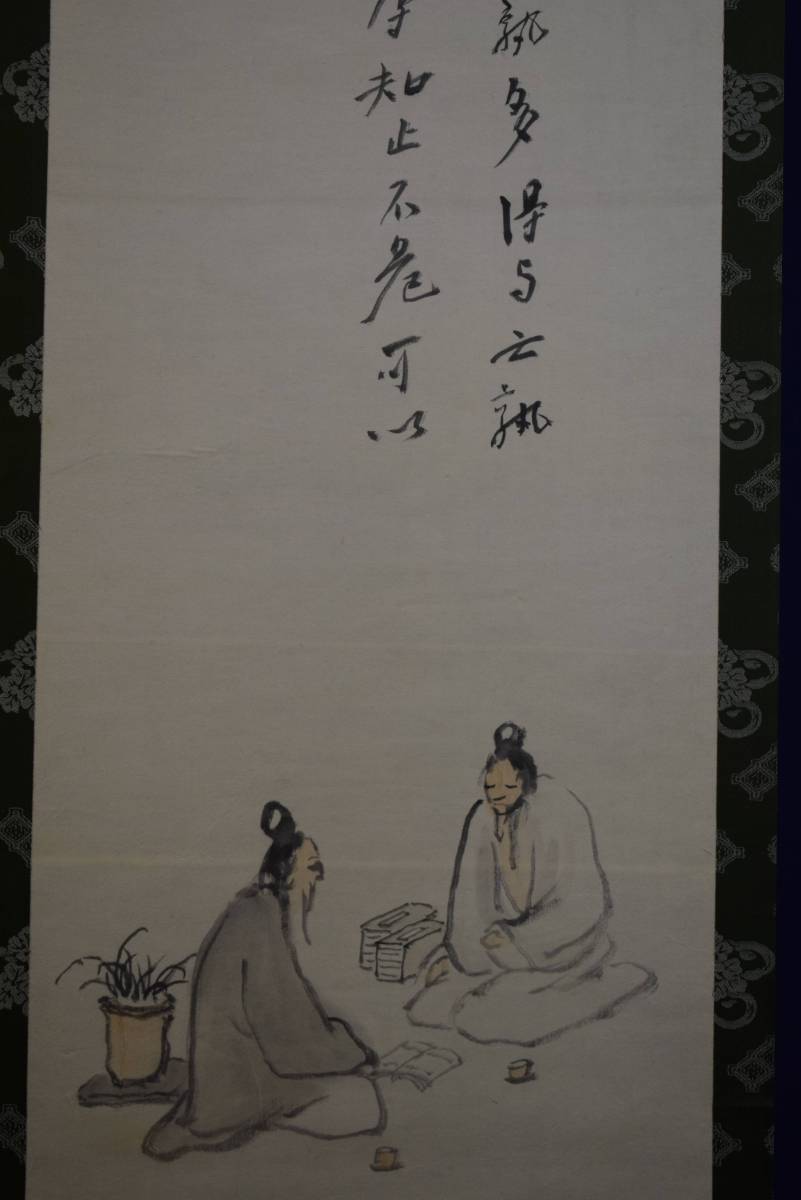 孰多得与亡孰
辱知止不危可以